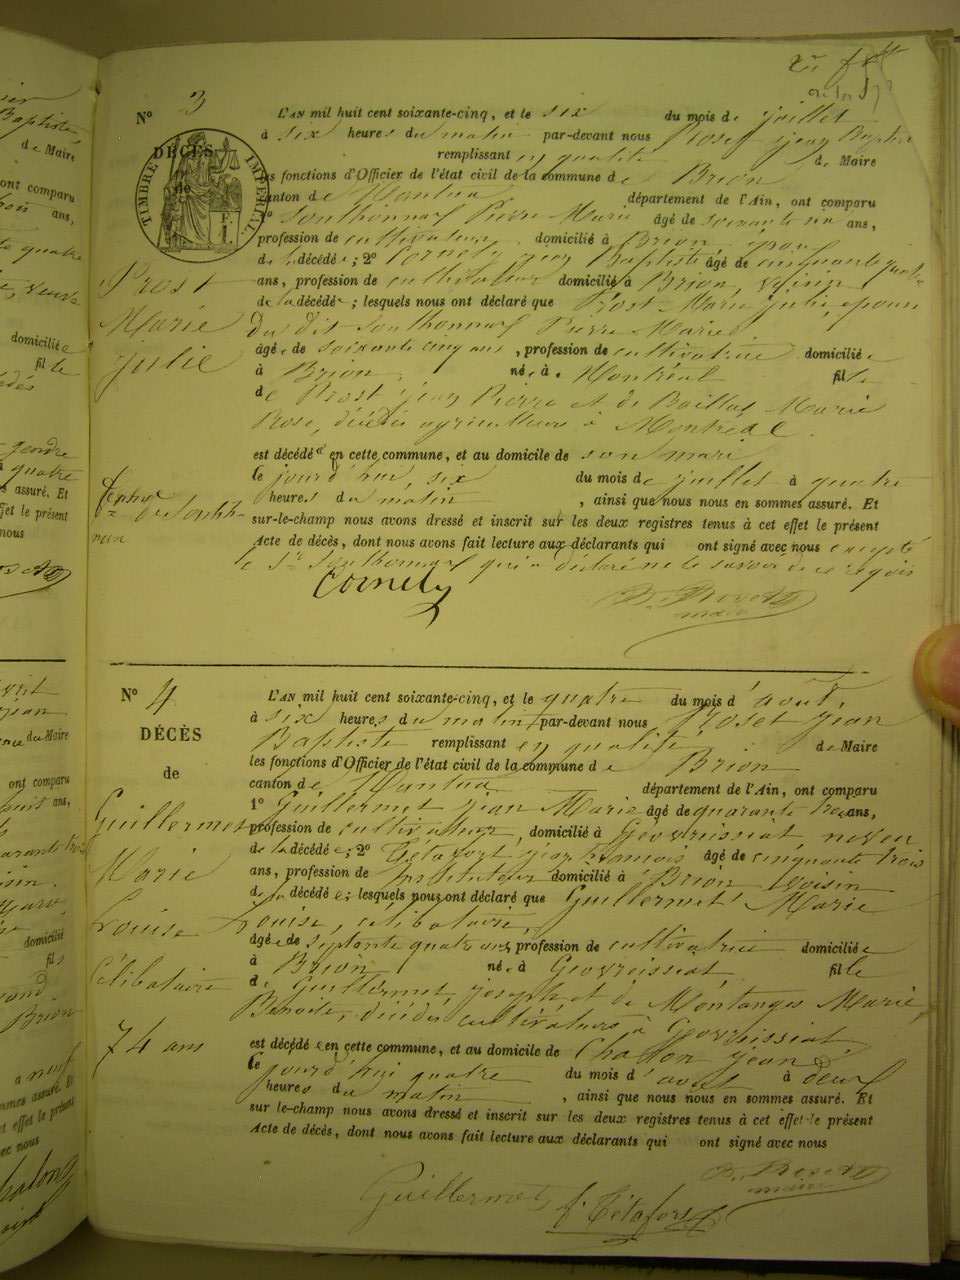 2me f
Nº 3
L'AN mil huit cent soixante-cinq, et le six du mois de juillet
à six heures du matin par-devant nous Roset jean Baptiste
remplissant en qualité de Maire
DÉCÈS
de
TIMBRE IMPÉRIAL
les fonctions d'Officier de l'état civil de la commune de Brion
canton de Nantua département de l'Ain, ont comparu
1º Sonthonnax Pierre Marie âgé de soixante un ans,
profession de cultivateur, domicilié à Brion, époux
de la décédée; 2º Cornely jean Baptiste âgé de cinquante quatre
ans, profession de cultivateur domicilié à Brion, voisin
de la décédée; lesquels nous ont déclaré que Prost Marie julie, épouse
Prost
Marie
julie
du dit Sonthonnax Pierre Marie
âgée de soixante cinq ans, profession de cultivatrice domiciliée
à Brion, née à Montréal fille
de Prost jean Pierre et de Baillas Marie
Rose, décédés agriculteurs à Montréal.
est décédée en cette commune, et au domicile de son mari
le jourd'hui, six du mois de juillet à quatre
heures du matin, ainsi que nous nous en sommes assuré. Et
femme
de Sonthonnax
sur-le-champ nous avons dressé et inscrit sur les deux registres tenus à cet effet le présent
Acte de décès, dont nous avons fait lecture aux déclarants qui ont signé avec nous excepté
le Sr Sonthonnax qui a déclaré ne le savoir de ce requis
Cornely
Bte Roset
maire
Nº 4
DÉCÈS
de
L'AN mil huit cent soixante-cinq, et le quatre du mois d'août,
à six heures du matin par-devant nous Roset jean
Baptiste remplissant en qualité de Maire
les fonctions d'Officier de l'état civil de la commune de Brion
canton de Nantua département de l'Ain, ont comparu
1º Guillermet jean Marie âgé de quarante trois ans,
profession de cultivateur, domicilié à Géovreissiat, neveu
de la décédée; 2º Tétafort jean françois âgé de cinquante trois
ans, profession de instituteur domicilié à Brion, voisin
de la décédée; lesquels nous ont déclaré que Guillermet Marie
Louise, célibataire,
Guillermet
Marie
Louise
Célibataire
74 ans
âgée de septante quatre ans, profession de cultivatrice domiciliée
à Brion née à Géovreissiat fille
de Guillermet, joseph et de Montanges Marie
Benoite, décédés cultivateurs à Géovreissiat
est décédée en cette commune, et au domicile de Chalon jean
le jourd'hui quatre du mois d'août à deux
heures du matin, ainsi que nous nous en sommes assuré. Et
sur le-champ nous avons dressé et inscrit sur les deux registres tenus à cet effet le présent
Acte de décès, dont nous avons fait lecture aux déclarants qui ont signé avec nous
Guillermet
f. Tétafort
Bte Roset
maire